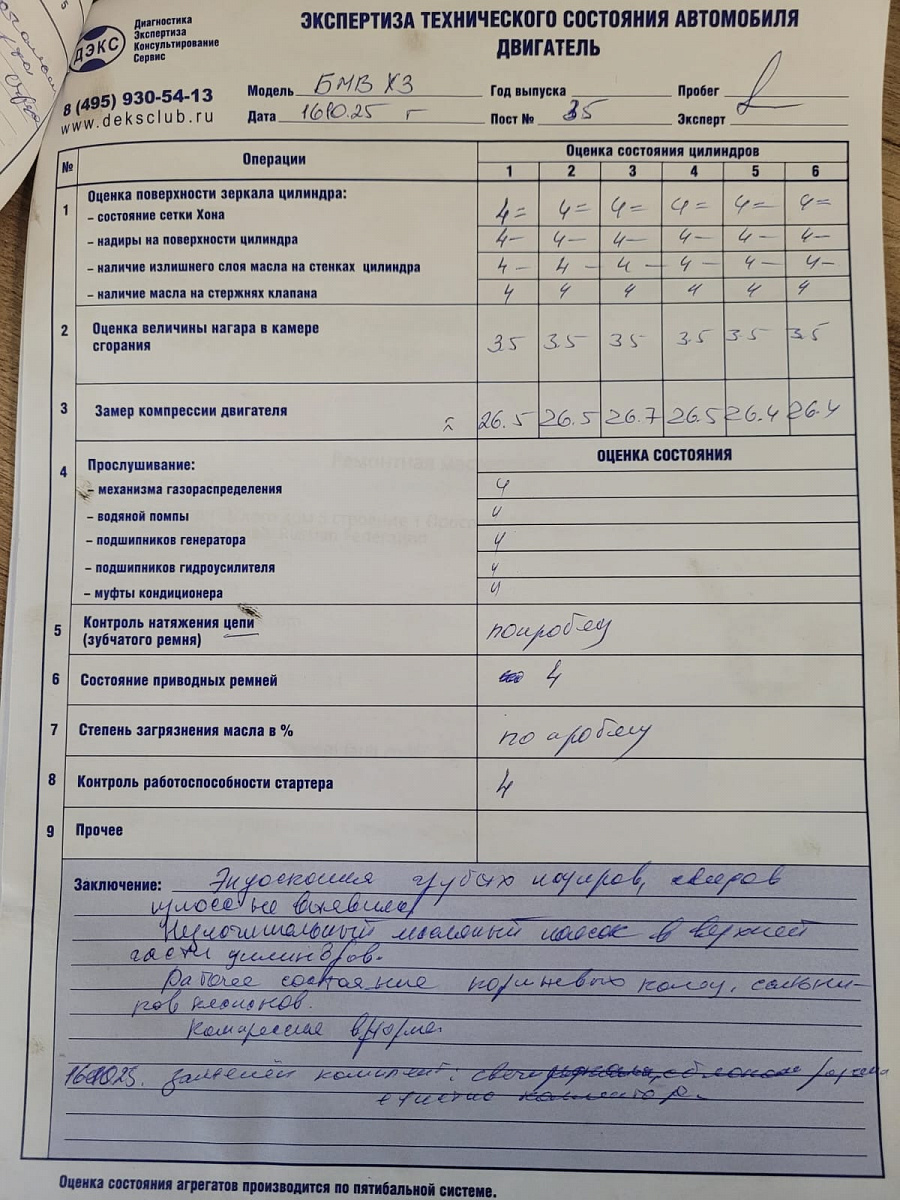 ДЭКС
Диагностика
Экспертиза
Консультирование
Сервис
8 (495) 930-54-13
www.deksclub.ru
ЭКСПЕРТИЗА ТЕХНИЧЕСКОГО СОСТОЯНИЯ АВТОМОБИЛЯ
ДВИГАТЕЛЬ
Модель БМВ X3 Год выпуска Пробег
Дата 16.10.25 г Пост № 35 Эксперт
№ Операции Оценка состояния цилиндров
1 2 3 4 5 6
1 Оценка поверхности зеркала цилиндра:
– состояние сетки Хона 4= 4= 4= 4= 4= 4=
– надиры на поверхности цилиндра 4– 4– 4– 4– 4– 4–
– наличие излишнего слоя масла на стенках цилиндра 4– 4– 4– 4– 4– 4–
– наличие масла на стержнях клапана 4 4 4 4 4 4
2 Оценка величины нагара в камере
сгорания 3.5 3.5 3.5 3.5 3.5 3.5
3 Замер компрессии двигателя 26.5 26.5 26.7 26.5 26.4 26.4
4 Прослушивание: ОЦЕНКА СОСТОЯНИЯ
– механизма газораспределения 4
– водяной помпы 4
– подшипников генератора 4
– подшипников гидроусилителя 4
– муфты кондиционера 4
5 Контроль натяжения цепи
(зубчатого ремня) по пробегу
6 Состояние приводных ремней 4
7 Степень загрязнения масла в % по пробегу
8 Контроль работоспособности стартера 4
9 Прочее
Заключение: Эндоскопия грубых надиров, следов
износа не выявила
Незначительный масляный поясок в верхней
части цилиндров.
Рабочее состояние поршневых колец, сальни-
ков клапанов.
Компрессия в норме.
16.10.25. заменён комплект: свечи
Оценка состояния агрегатов производится по пятибальной системе.